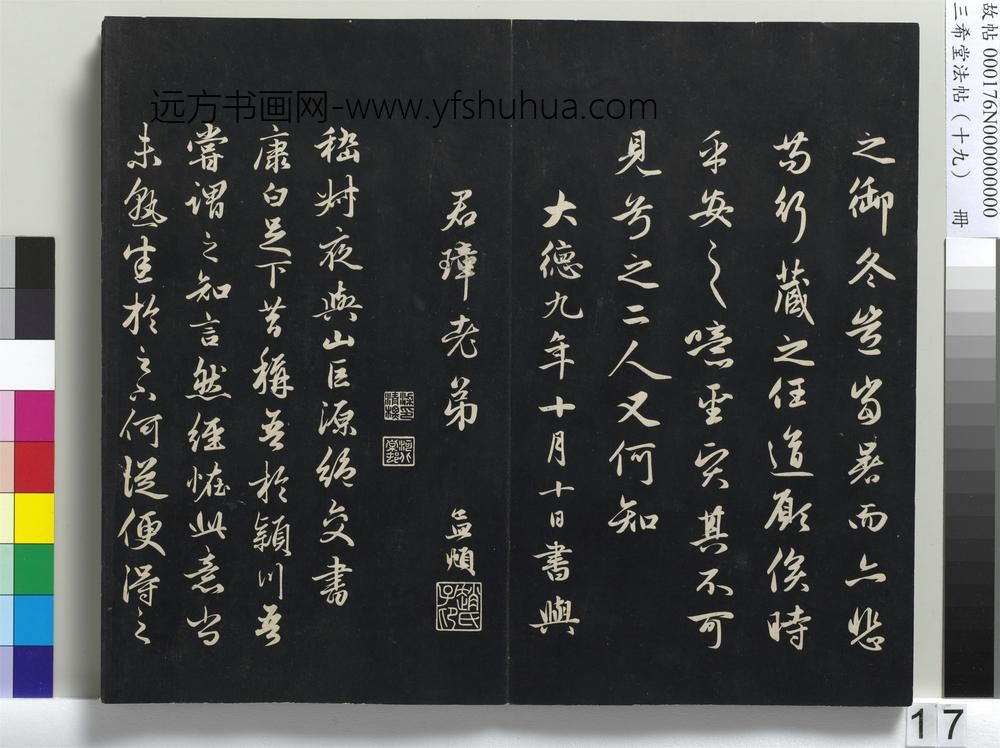 故帖 000176N000000000
三希堂法帖（十九） 冊
远方书画网-www.yfshuhua.com
之御冬豈當暑而亦悲
苟行藏之任道願俟時
乎安之噫聖哭其不可
見兮之二人又何知
大德九年十月十日書與
君璋老弟 孟頫
趙氏子印
嵇叔夜與山巨源絕交書
康白足下昔稱吾於潁川吾
嘗謂之知言然經怪此意尚
未熟悉於足下何從便得之
17